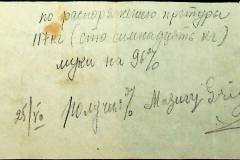 по распоряжению претуры
117 кг (сто симнадцять кг)
муки на 96%
25/VII получил Мазигу